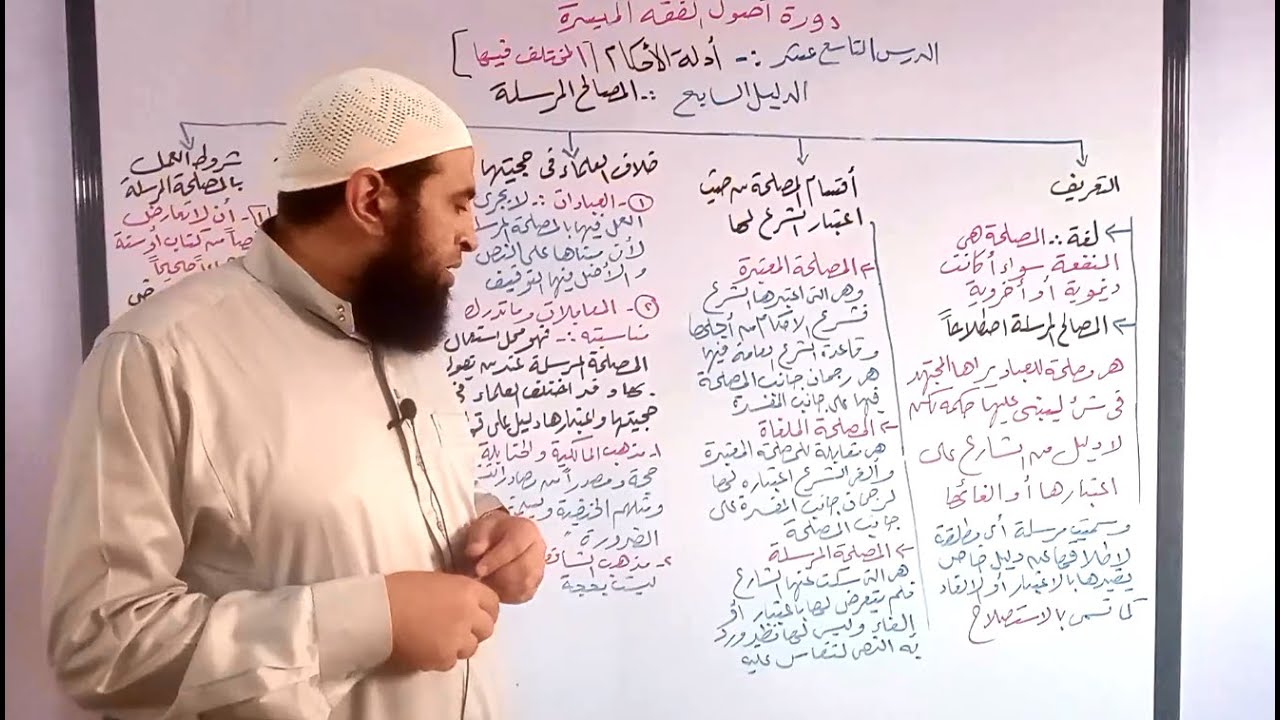 دورة أصول الفقه الميسرة
الدرس التاسع عشر :- أدلة الأحكام [المختلف فيها]
الدليل السابع :- المصالح المرسلة
التعريف
لغة :- المصلحة هي
المنفعة سواء أكانت
دنيوية أو أخروية
المصالح المرسلة اصطلاحاً
هي مصلحة للعباد يراها المجتهد
في شئ ليبنى عليها حكمه لكن
لا دليل من الشارع على
اعتبارها أو الغائها
وسميت مرسلة أى مطلقة
لإطلاقها عن دليل خاص
يقيدها بالاعتبار أو الالغاء
كما تسمى بالاستصلاح
أقسام المصلحة من حيث
اعتبار الشرع لها
المصلحة المعتبرة
وهى التى اعتبرها الشرع
فشرع الاحكام من أجلها
وقاعدة الشرع العامة فيها
هى رجحان جانب المصلحة
فيها على جانب المفسدة
المصلحة الملغاة
هى مقابلة للمصلحة المعتبرة
وألغى الشرع اعتباره لها
لرجحان جانب المفسدة على
جانب المصلحة
المصلحة المرسلة
هى التى سكت عنها الشارع
فلم يتعرض لها باعتبار أو
إلغاء وليس لها نظير ورد
به النص لتقاس عليه
خلاف العلماء فى حجيتها
١- العبادات :- لا يجرى
العمل فيها بالمصلحة
لأن مبناها على النص
والأصل فيها التوقيف
٢- المعاملات وما تدرك
مناسبته :- فهو محل استعمال
المصلحة المرسلة عند من يقول
بها وقد اختلف العلماء فى
حجيتها واعتبارها دليل على
١- مذهب المالكية والحنابلة
حجة ومصدراً من مصادر
ومثلهم الحنفية
الضرورة
٢- مذهب
ليست بحجة
شروط العمل
بالمصلحة المرسلة
١- أن لا تعارض
نصاً من كتاب أو سنة
صحيحاً